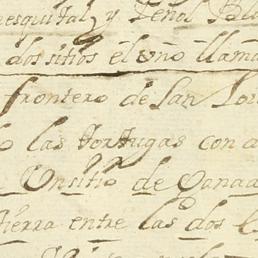 esquital, y Peñol Bl
dos sitios el uno llam
frontero de San Lor
las tortugas con
Un sitio de Gana
tierra entre las dos